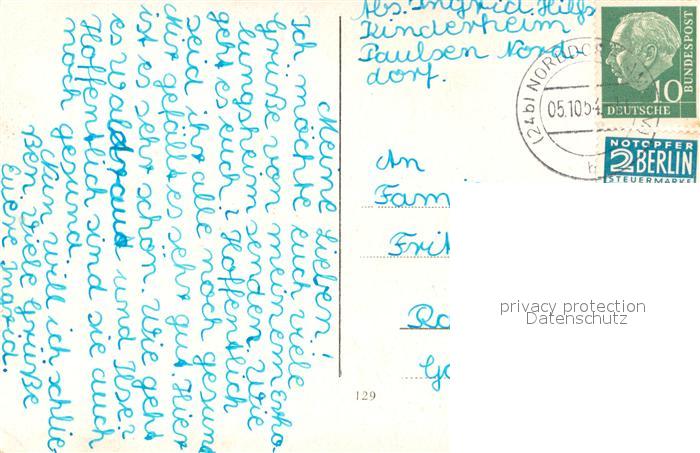 Meine Lieben!
Ich möchte euch viele
Grüße von meinem Erho-
lungsheim senden. Wie
geht es euch? Hoffentlich
seid ihr alle noch gesund
Mir gefällt es sehr gut. Hier
ist es sehr schön. Wie geht
es und Ilse?
Hoffentlich sind sie auch
noch gesund.
Nun will ich schlie-
ßen. Viele Grüße
Euere Ingrid.
Abs. Ingrid Hilfs
Kinderheim
Paulsen Nord-
dorf.
(24b) NORDDORF
05.10.54
b
DEUTSCHE
BUNDESPOST
10
NOTOPFER
2 BERLIN
STEUERMARKE
An
Fam
Fri
Ra
Ga
129
privacy protection
Datenschutz